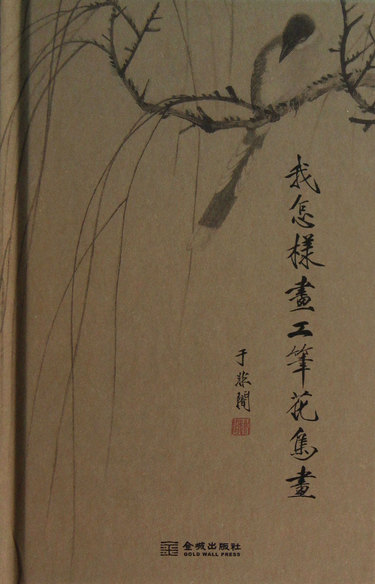 我怎樣畫工筆花鳥畫
于非闇
金城出版社
GOLD WALL PRESS